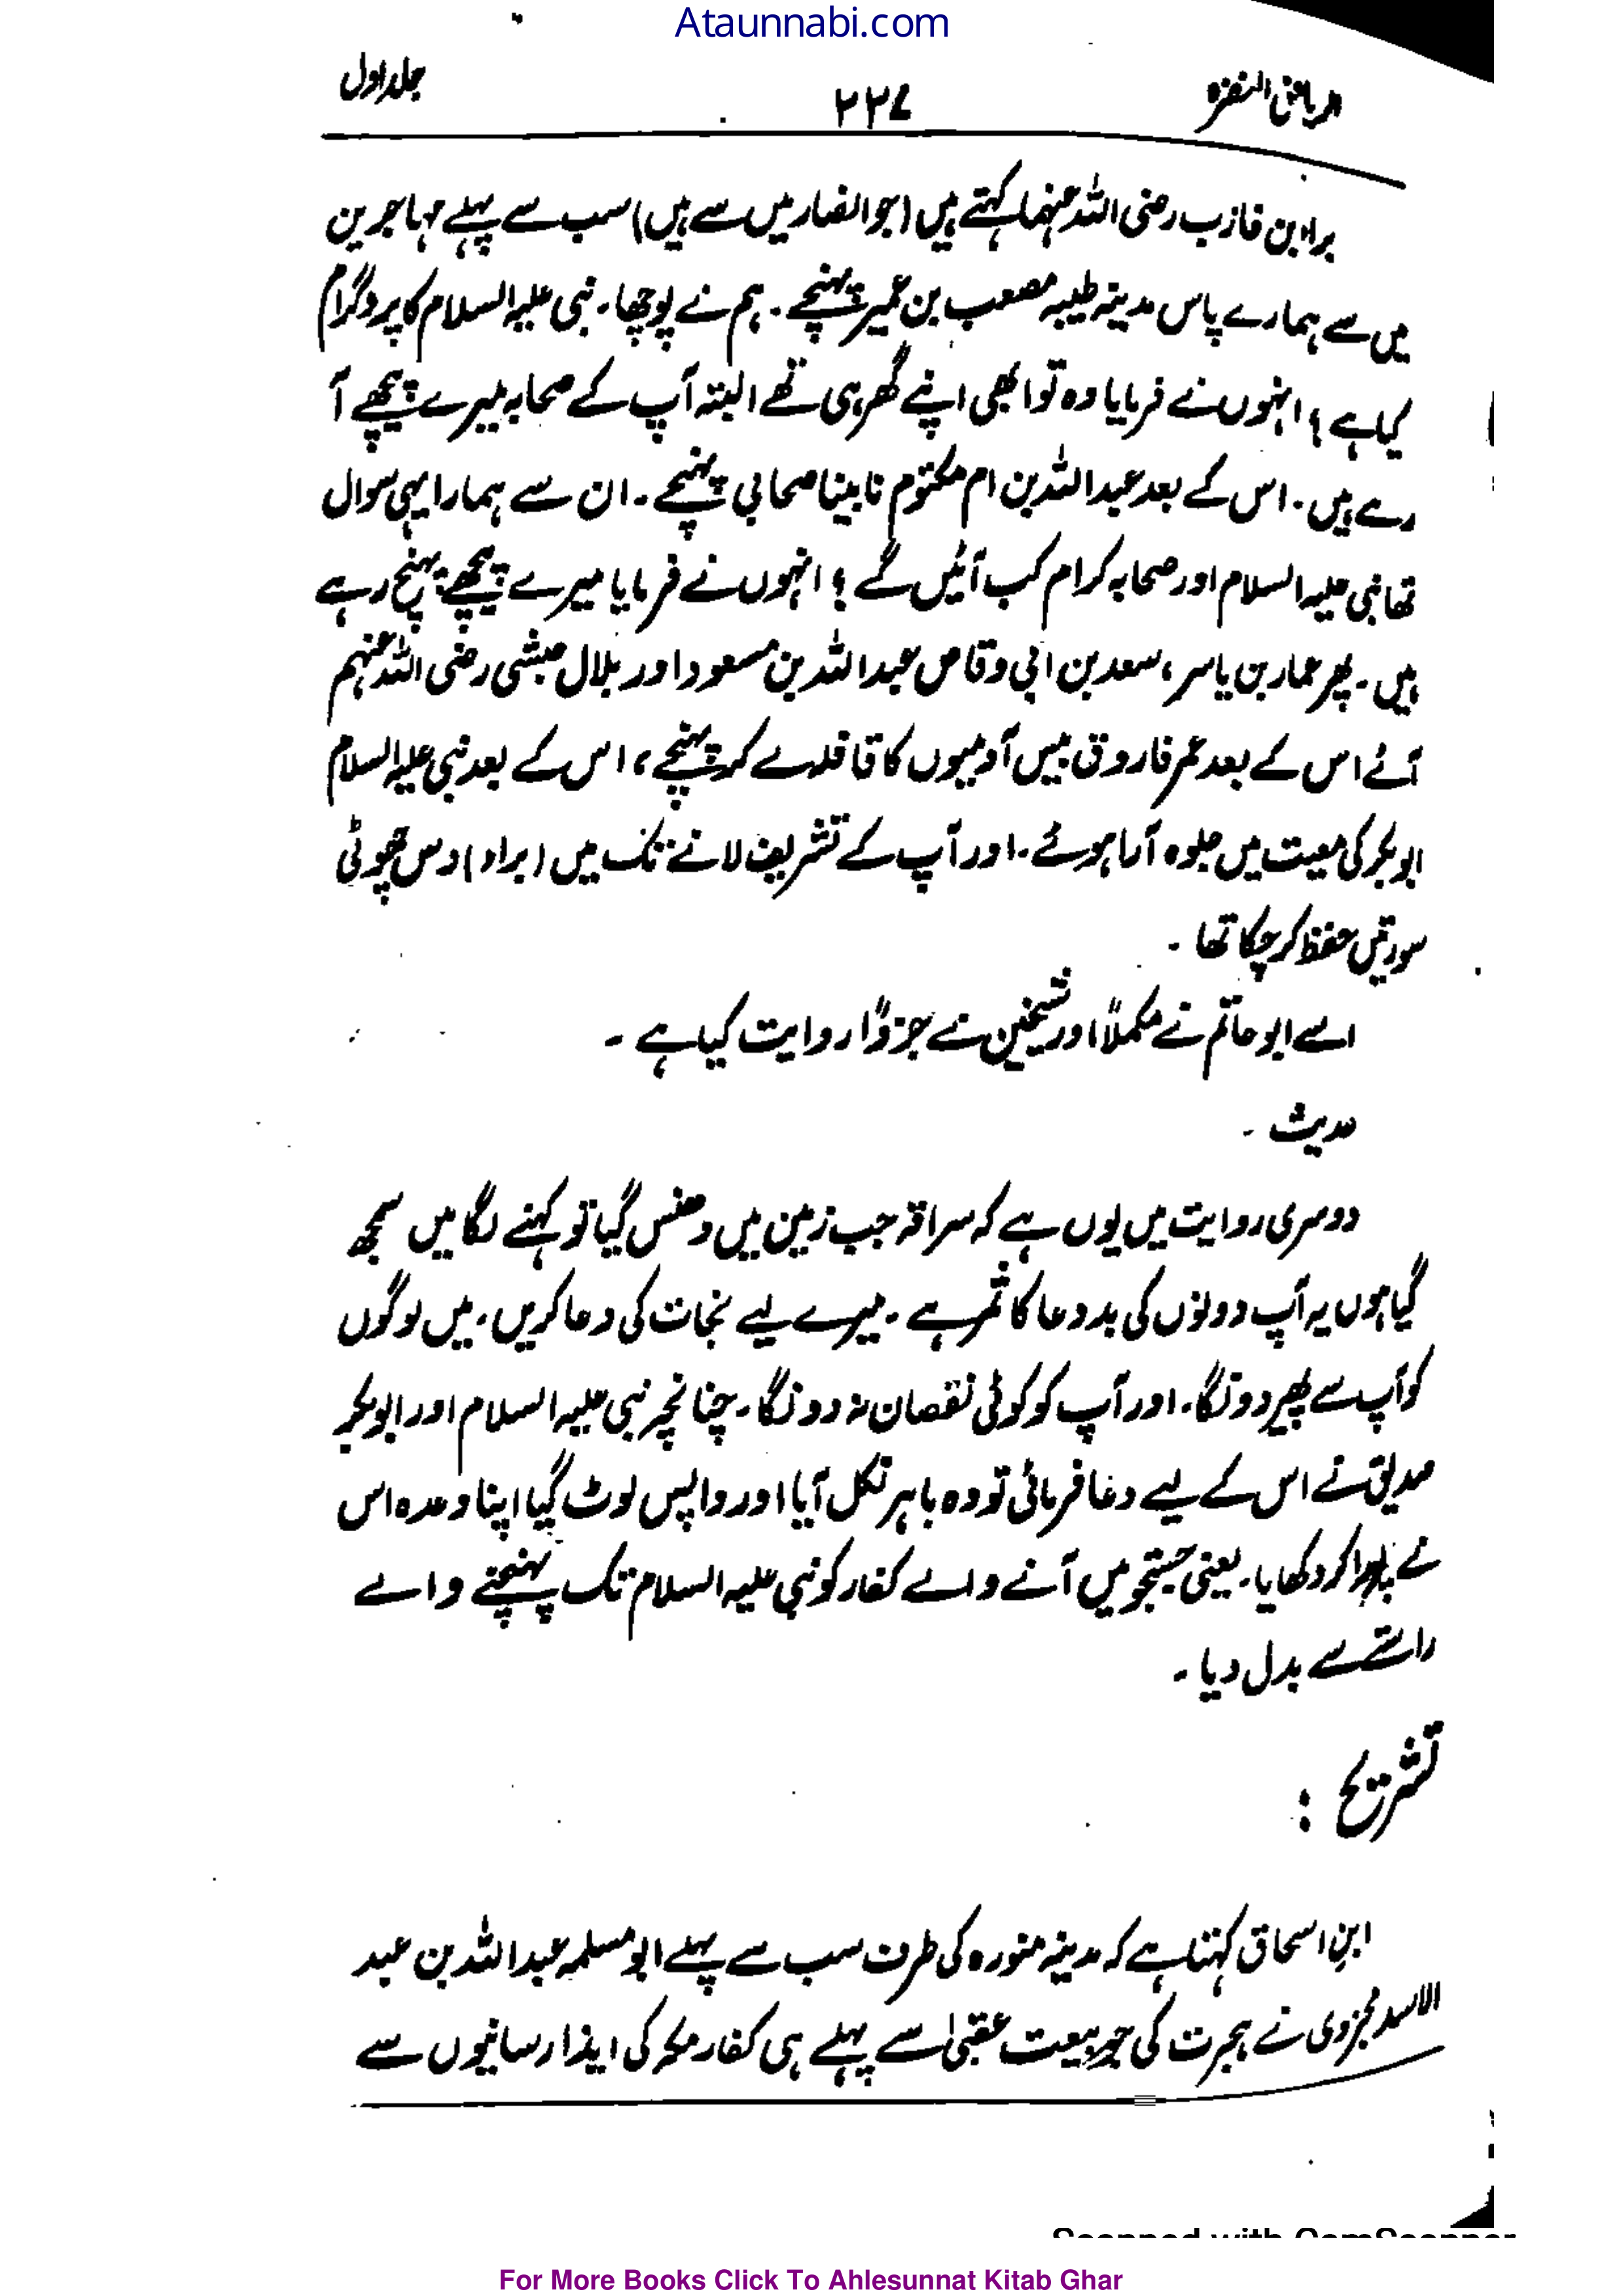 Ataunnabi.com
الریاض النضرہ ۲۲۷ جلد اول
براء بن عازب رضی اللہ عنہما کہتے ہیں (جو انصار میں سے ہیں) سب سے پہلے مہاجرین
میں سے ہمارے پاس مدینہ طیبہ مصعب بن عمیر پہنچے۔ ہم نے پوچھا۔ نبی علیہ السلام کا پروگرام
کیا ہے؟ انہوں نے فرمایا وہ تو ابھی اپنے گھر ہی تھے البتہ آپ کے صحابہ میرے پیچھے آ
رہے ہیں۔ اس کے بعد عبداللہ بن ام مکتوم نابینا صحابی پہنچے۔ ان سے ہمارا یہی سوال
تھا نبی علیہ السلام اور صحابہ کرام کب آئیں گے؟ انہوں نے فرمایا میرے پیچھے پہنچ رہے
ہیں۔ پھر عمار بن یاسر، سعد بن ابی وقاص عبداللہ بن مسعود اور بلال حبشی رضی اللہ عنہم
آئے اس کے بعد عمر فاروق بیس آدمیوں کا قافلہ لے کر پہنچے، اس کے بعد نبی علیہ السلام
ابوبکر کی معیت میں جلوہ آرا ہوئے۔ اور آپ کے تشریف لانے تک میں (براء) دس چھوٹی
سورتیں حفظ کر چکا تھا۔
اسے ابو حاتم نے مکملاً اور شیخین نے جزواً روایت کیا ہے۔
حدیث۔
دوسری روایت میں یوں ہے کہ سراقہ جب زمین میں دھنس گیا تو کہنے لگا میں سمجھ
گیا ہوں یہ آپ دونوں کی بددعا کا ثمر ہے۔ میرے لیے نجات کی دعا کریں، میں لوگوں
کو آپ سے پھیر دونگا۔ اور آپ کو کوئی نقصان نہ دونگا۔ چنانچہ نبی علیہ السلام اور ابوبکر
صدیق نے اس کے لیے دعا فرمائی تو وہ باہر نکل آیا اور واپس لوٹ گیا اپنا وعدہ اس
نے پورا کر دکھایا۔ یعنی جستجو میں آنے والے کفار کو نبی علیہ السلام تک پہنچنے والے
راستے سے بدل دیا۔
تشریح:
ابنِ اسحاق کہتا ہے کہ مدینہ منورہ کی طرف سب سے پہلے ابو مسلمہ عبداللہ بن عبد
الاسد مخزومی نے ہجرت کی جو بیعت عقبیٰ سے پہلے ہی کفار مکہ کی ایذا رسانیوں سے
Scanned with CamScanner
For More Books Click To Ahlesunnat Kitab Ghar